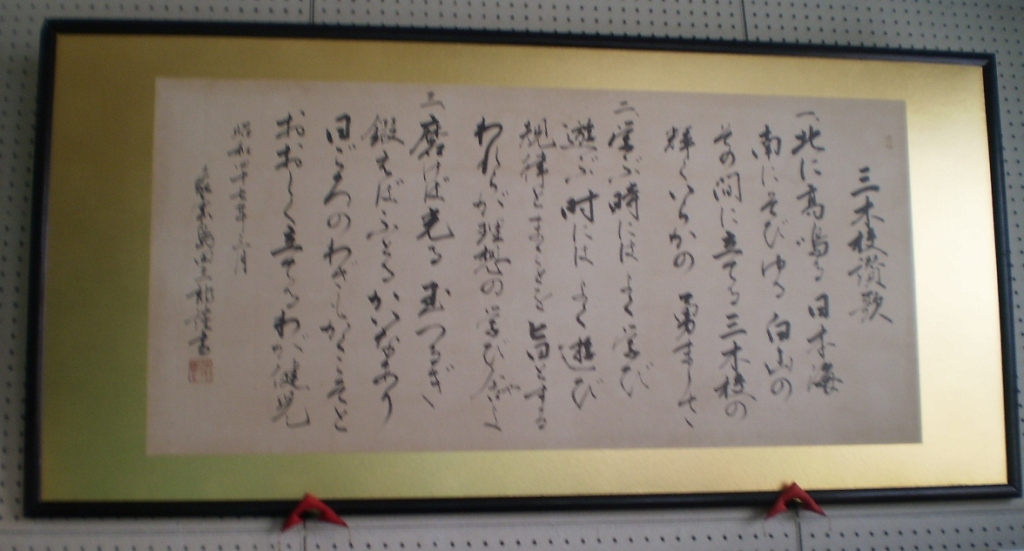 三木校讃歌
一、北に高鳴る日本海
南にそびゆる白山の
その間に立てる三木校の
輝くいらかの勇ましさ
二、学ぶ時にはよく学び
遊ぶ時にはよく遊び
規律とまことを旨とする
われらが理想の学び
三、磨けば光る玉つるぎ
鍛えばふとるかいなあり
日ごろのわざ
おおしく立てるわが健児
昭和四十